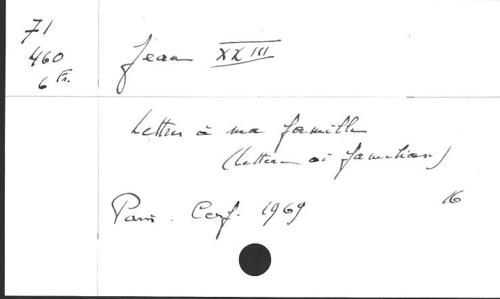 71
460
6 Fr.
Jean XXIII
Lettres à ma famille
(Lettere ai familiari)
Paris. Cerf. 1969
16